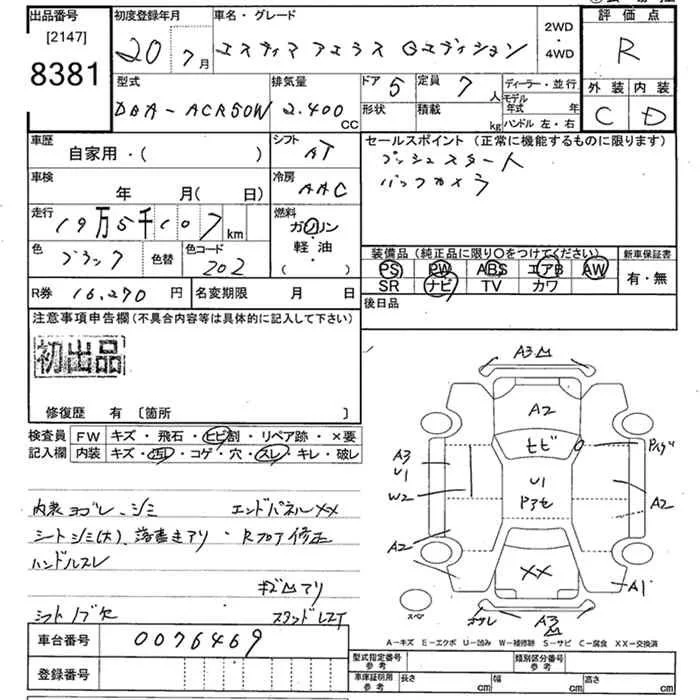 出品番号 初度登録年月 車名・グレード 評価点
[2147] 20 7月 エスティマ アエラス Gエディション 2WD ・ 4WD R
8381 外装 内装
型式 排気量 ドア 5 定員 7人 ディーラー・並行 C D
DBA-ACR50W 2.400 CC 形状 積載 kg モデル年式 年
ハンドル 左・右
車歴 シフト セールスポイント (正常に機能するものに限ります)
自家用・( ) AT プッシュスタート
車検 冷房 バックカメラ
年 月( 日) AAC
走行 燃料
19万5千107km ガソリン
色 色替 色コード 軽・油 装備品 (純正品に限り〇をつけてください) 新車保証書
ブラック 202 ・( ) PS PW ABS エアB AW 有・無
R券 16.270円 名変期限 月 日 SR ナビ TV カワ
注意事項申告欄(不具合内容等は具体的に記入して下さい) 後日品
初出品
修復歴 有 〔箇所 〕
検査員 FW キズ・飛石・ヒビ割・リペア跡・×要
記入欄 内装 キズ・汚レ・コゲ・穴・スレ・キレ・破レ
A3
A2
ヒビ
A3
U1 U1
W2 A2
A2
XX A1
スペア A3
内装ヨゴレ、シミ エンドパネルXX
シートシミ(大)、落書きアリ・Rフロア修正
ハンドルスレ
シフトノブ欠
A-キズ E-エクボ U-凹み W-補修跡 S-サビ C-腐食 XX-交換済
車台番号 0076469
型式指定番号 参考 類別区分番号 参考
登録番号 車庫証明用 参考 長さ cm 幅 cm 高さ cm